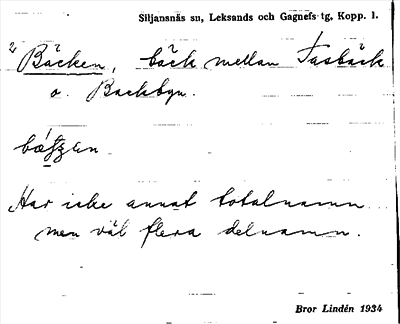 Siljansnäs sn, Leksands och Gagnefs tg, Kopp. l.
2 Bäcken, bäck mellan Fasbäck
o. Backbyn.
Har icke annat totalnamn
men väl flera delnamn.
Bror Lindén 1934